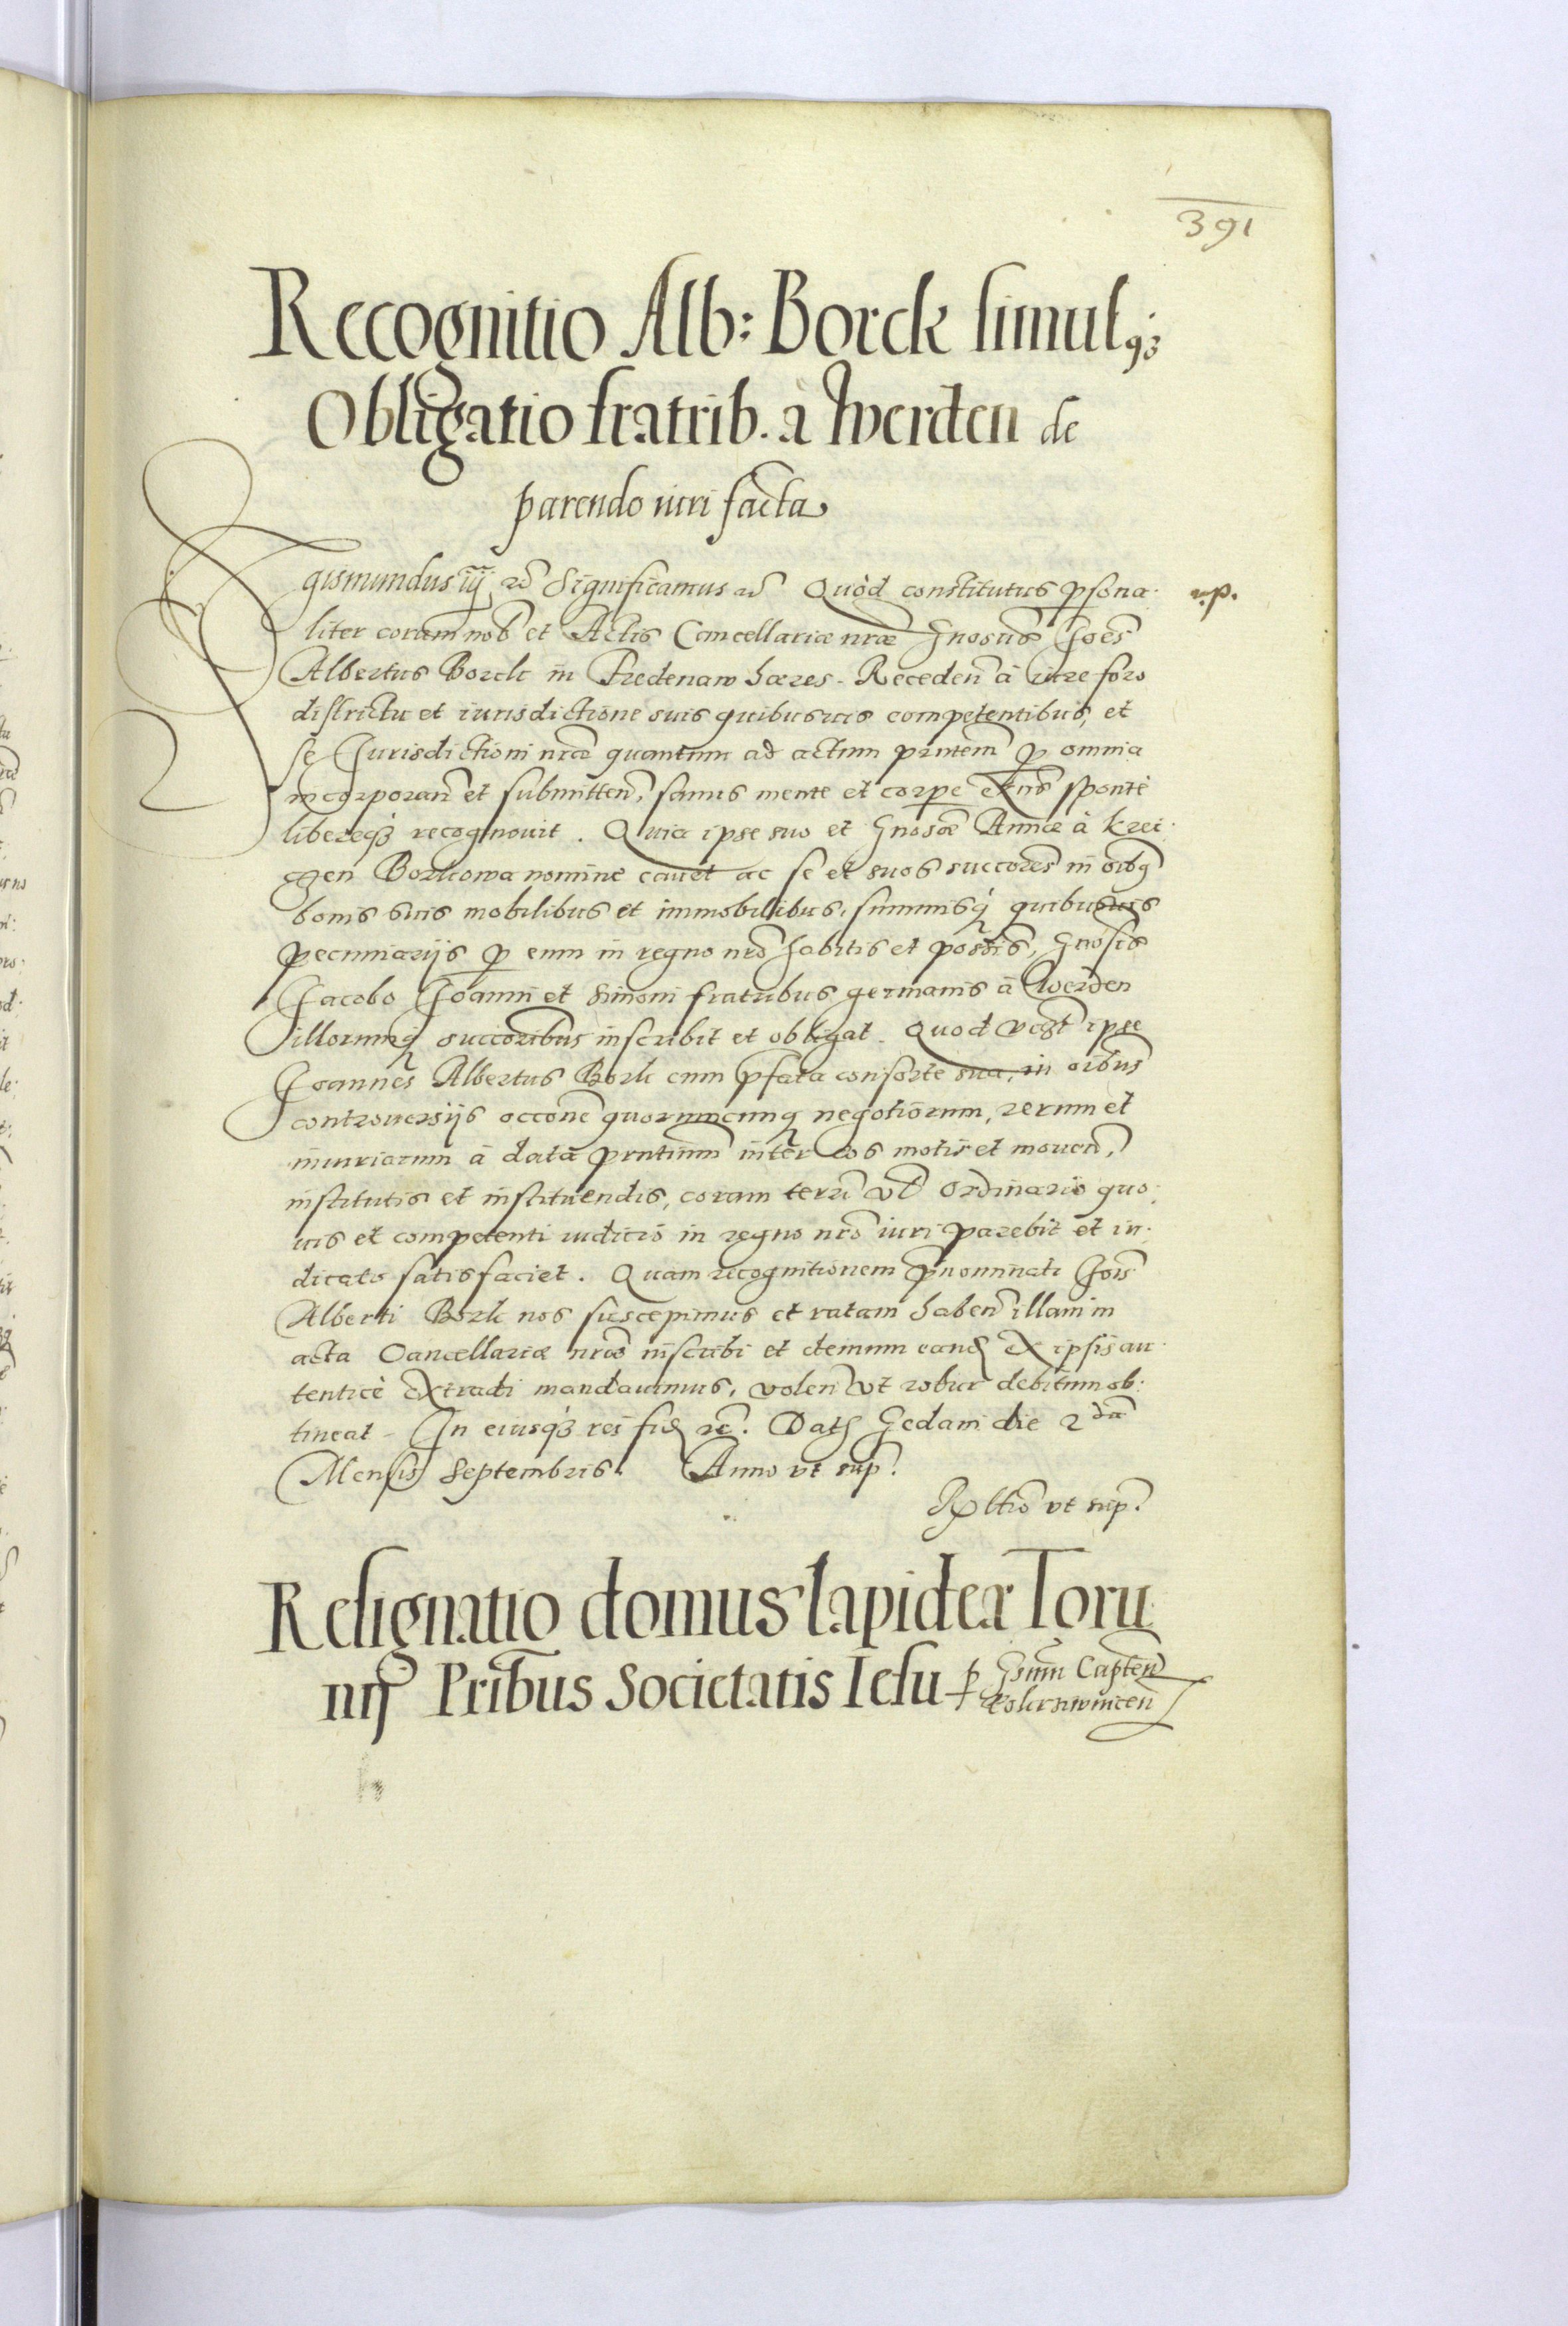 391
Recognitio Alb: Borck simulqȝ
Obligatio fratrib. à Werden de
parendo iuri facta
Sigismundus iij rc̃ Significamus rc̃ Quòd constitutus p̱sona-
liter coram nob̃ et Actis Cancellariæ nrae Gnosus Joe͂s
Albertus Borck in Fredenaw hæres. Receden̄ à iure foro
districtu et iurisdictione suis quibusuis competentibus, et
se Jurisdictioni nrae quantum ad actum pn̄tem p̱ omnia
incorporan̄ et submitten̄, sanus mente et corpe ex͂ns sponte
libereqȝ recognouit. Quia ipse suo et Gnosae Annæ à Krei-
tzen Borkowa nomine cauet ac se et suos succores in oibq
bonis suis mobilibus et immobilibus, summisq quibusuis
pecuniarijs p̱ eum in regno nrõ habitis et possis, Gnosis
Jacobo Joanni et Simoni fratribus germanis à Werden
illorumq succoribus inscribit et obligat. Quod vbt ipse
Joannes Albertus Bork cum p̄fata consorte sua, in oibus
controuersijs occone quorumcunq negotiorum, rerum et
iniuriarum à data pn̄tium inter eos motis et mouen̄,
institutis et instituendis, coram terri vl̃ Ordinario quo-
uis et competenti iudicio in regno nrõ iuri parebit et iu-
dicato satisfaciet. Quam recognitionem p̄nominati Jois
Alberti Bork nos suscepimus et ratam haben̄ illam in
acta Cancellariæ nrae inscribi et demum eand ex ipsis au-
tenticè extradi mandauimus, volen̄ vt robur debitum ob-
tineat. In eiusqȝ rei fid rc̃. Dat Gedani die 2da
Mensis Septembris. Anno vt sup.
Rltio vt sup.
u.p.
Resignatio domus lapideæ Toru
nij Pribus Societatis Iesu p̱ Gsum Capten